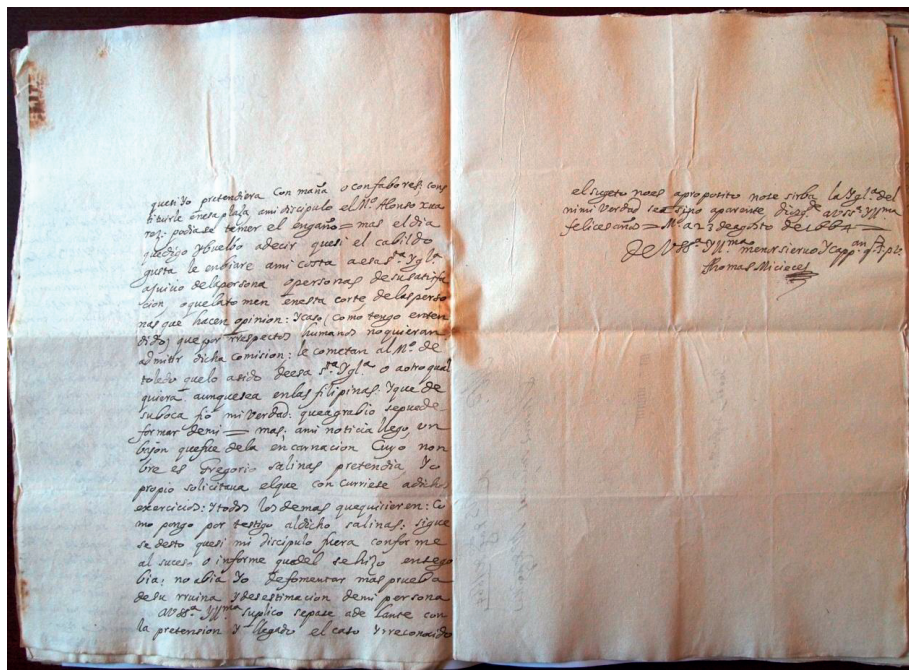 que si Yo pretendiera Con maña o confabores; cons
tituirle en esa plaza a mi discipulo el Mº. Alonso xua
rez: podiase temer el engaño = mas el dia
que digo Y buelbo a decir que si el cabildo
gusta le enbiare a mi costa a esa s.ta Ygl.a
a juicio de la persona o personas de su satisfa
cion, o que la tomen en esta corte de las perso
nas que hacen opinion: Y caso (como tengo enten
dido) que por rrespectos humanos no quieran
admitir dicha comision: le cometan al Mº. de
toledo que lo a sido de esa s.ta Ygl.a o a otro qual
quiera aunque sea en las filipinas. Y que de
su boca fio mi Verdad: que agrabio se puede
formar de mi = mas. a mi noticia llego, un
bajon que fue de la encarnacion Cuyo non
bre es Gregorio salinas pretendia Yo
propio solicitaua el que concurriese a dicho
exercicio: Y todos los demas que quisieren: Co
mo pongo por testigo al dicho salinas: sigue
se desto que si mi discipulo fuera conforme
al suceso o informe que del se hizo en sego
bia: no abia Yo de fomentar mas prueba
de su rruina Y desestimacion de mi persona
a VSS.a Yll.ma suplico se pase adelante con
la pretension Y llegado el caso Y rreconocido
el sugeto no es a proposito no se sirba la Ygl.a del
ni mi Verdad sea sino aparente a VSS.a Yll.ma
felices años = M.d a 23 de agosto de 1684 =
De VSS.a Yll.ma menr sieruo Y Capp.an
Thomas Micieces